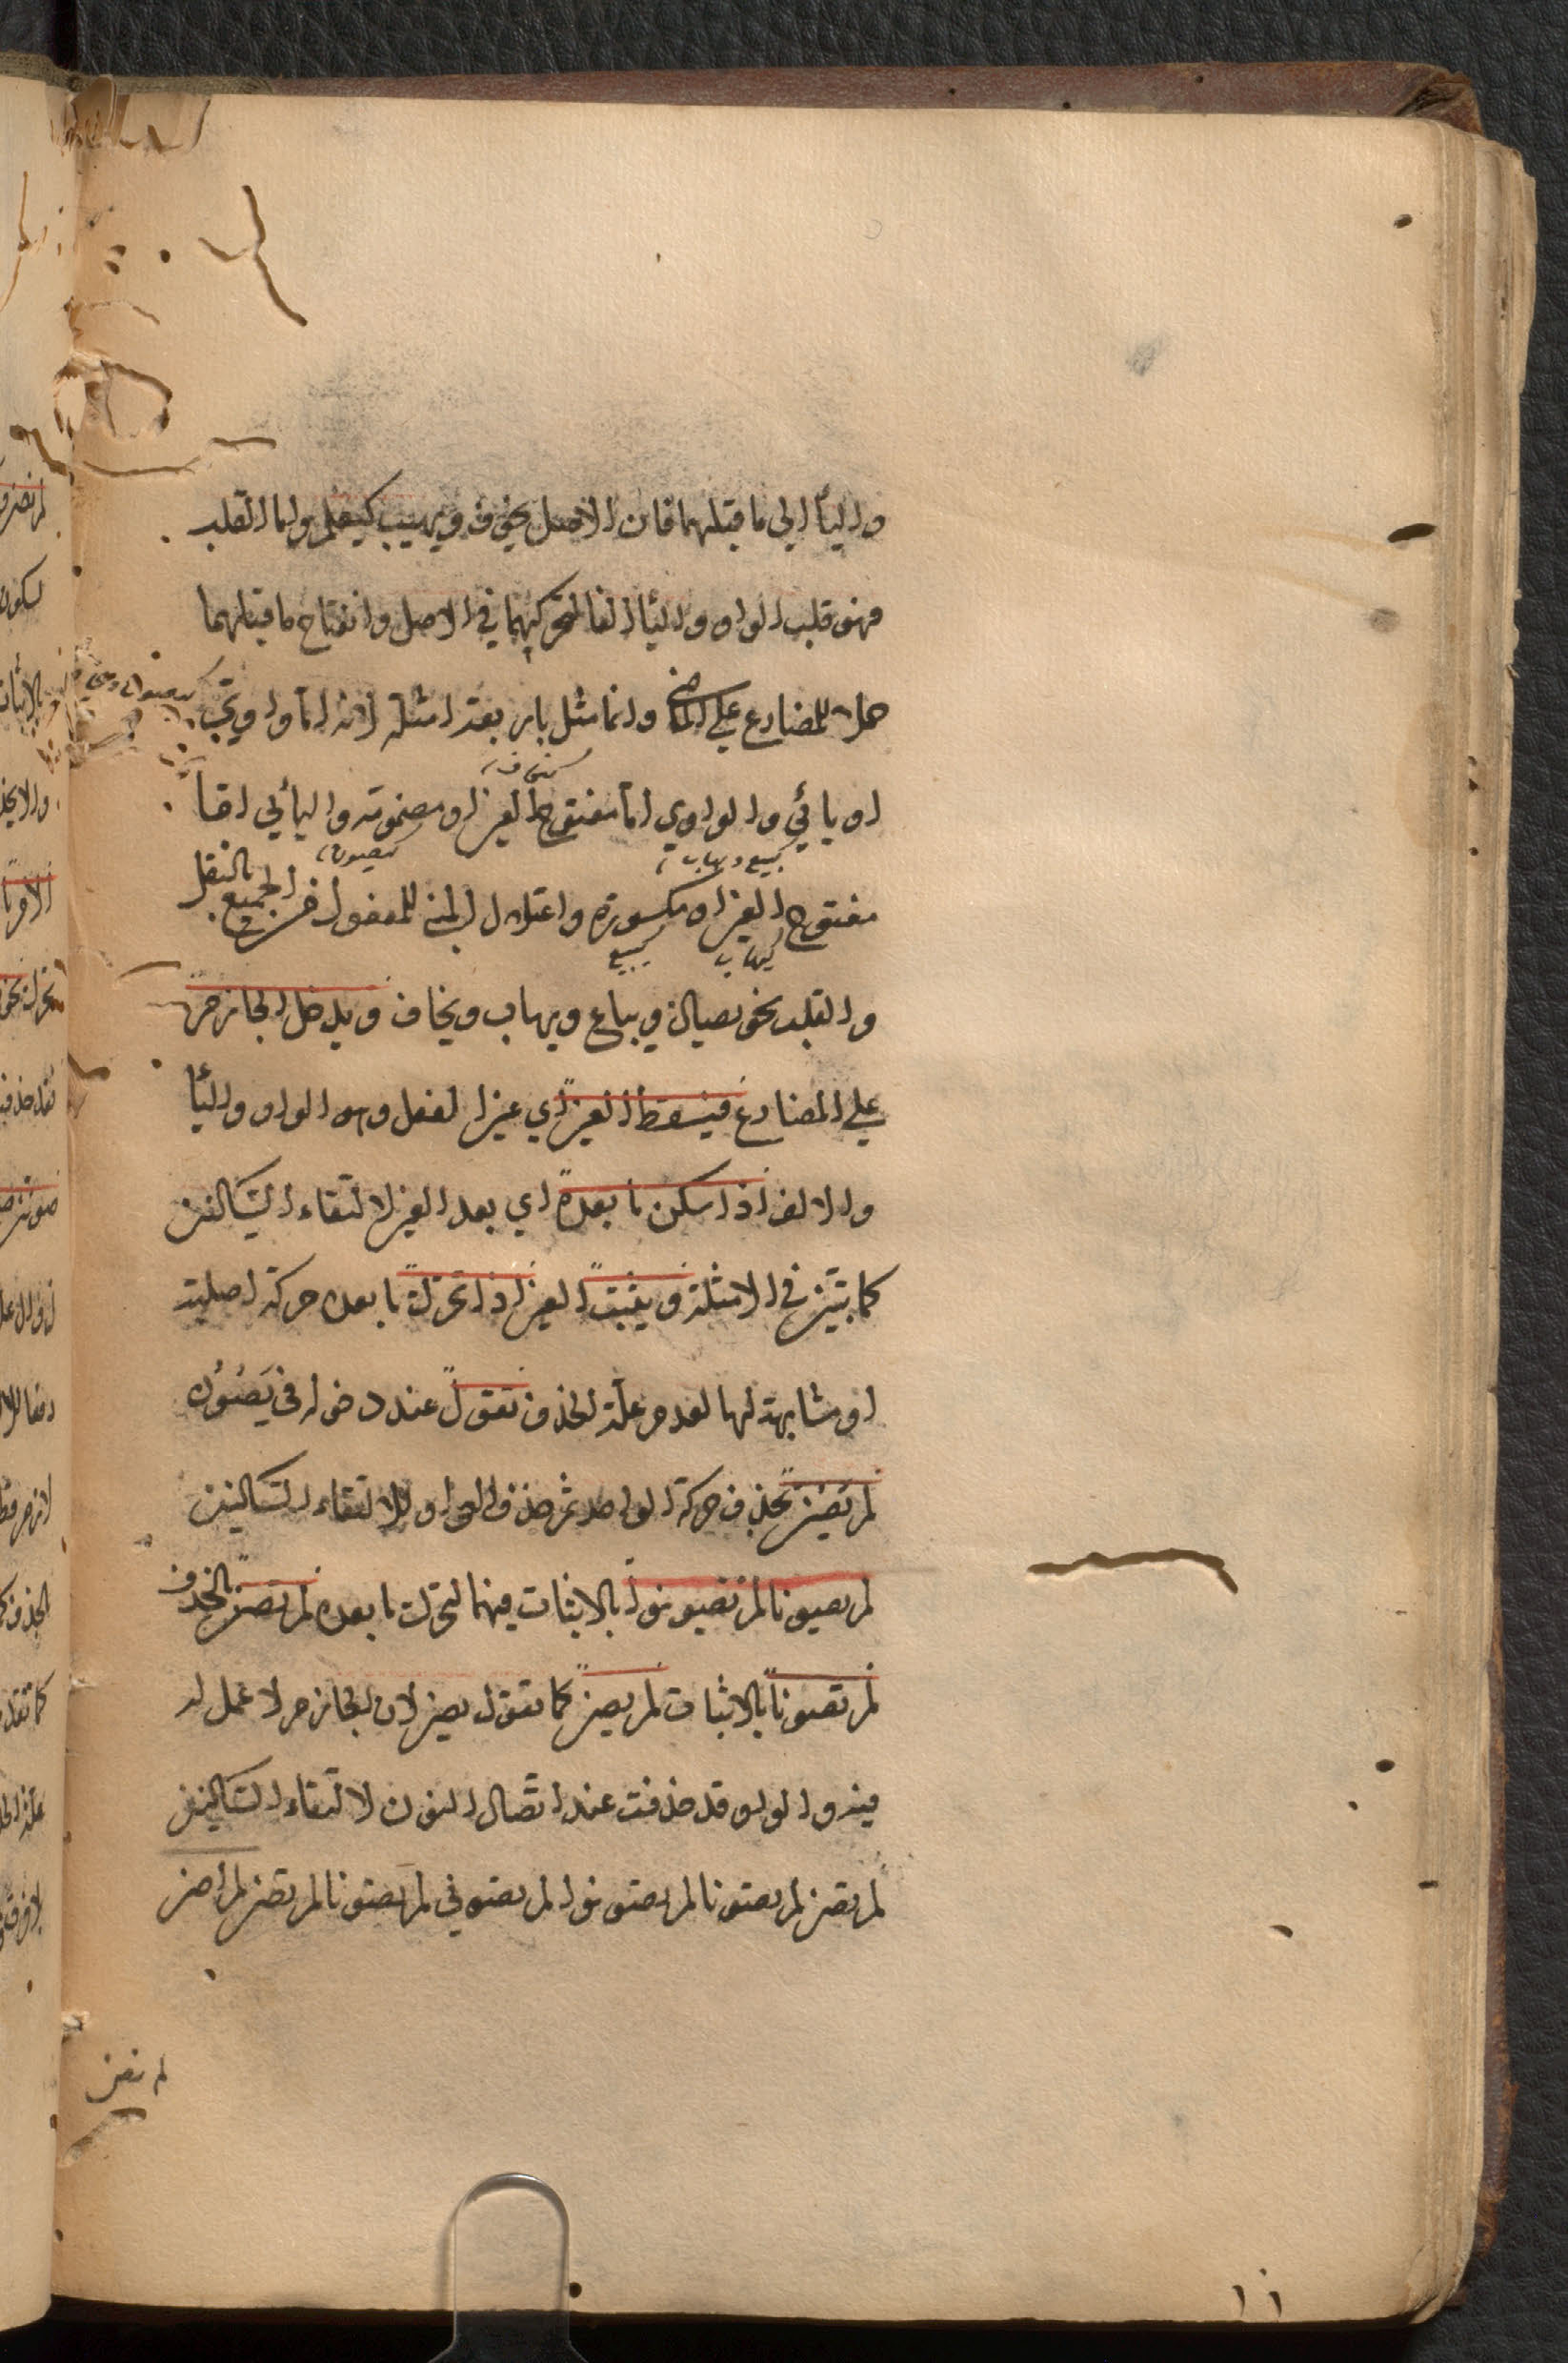 والياء الى ما قبلهما فان الاصل يخوف ويهيب كيعلم واما القلب
فهو قلب الواو والياء الفا لتحركهما في الاصل وانفتاح ما قبلهما
حملا للمضارع على الماضي وانما مثل باربعة امثلة لانه اما واوي
كيصون
كيخاف
او يائي والواوي اما مفتوح العين او مضمومه واليائي اما
كيبيع ويهاب
كيصون
مفتوح العين او مكسورة واعتلال المبني للمفعول من الجميع بالنقل
كيهاب
كيبيع
والقلب نحو يصان ويباع ويهاب ويخاف ويدخل الجازم
على المضارع فيسقط العين اي عين الفعل وهو الواو والياء
والالف اذا سكن ما بعده اي بعد العين لالتقاء الساكنين
كما تبين في الامثلة ويثبت العين اذا تحرك ما بعده حركة اصلية
او مشابهة لها لعدم علة الحذف تقول عند دخوله في يَصُوُن
لم يصن بحذف حركة الواحد ثم حذف الواو لالتقاء الساكنين
لم يصونا لم يصونوا بالاثبات فيهما لتحرك ما بعده لم تصن بالحذف
لم تصونا بالاثبات لم يصن كما تقول يصن لان الجازم لا عمل له
فيه والواو قد حذفت عند اتصال النون لالتقاء الساكنين
لم تصن لم تصونا لم تصونوا لم تصوني لم تصونا لم تصن لم اصن
لم نصن
١٠